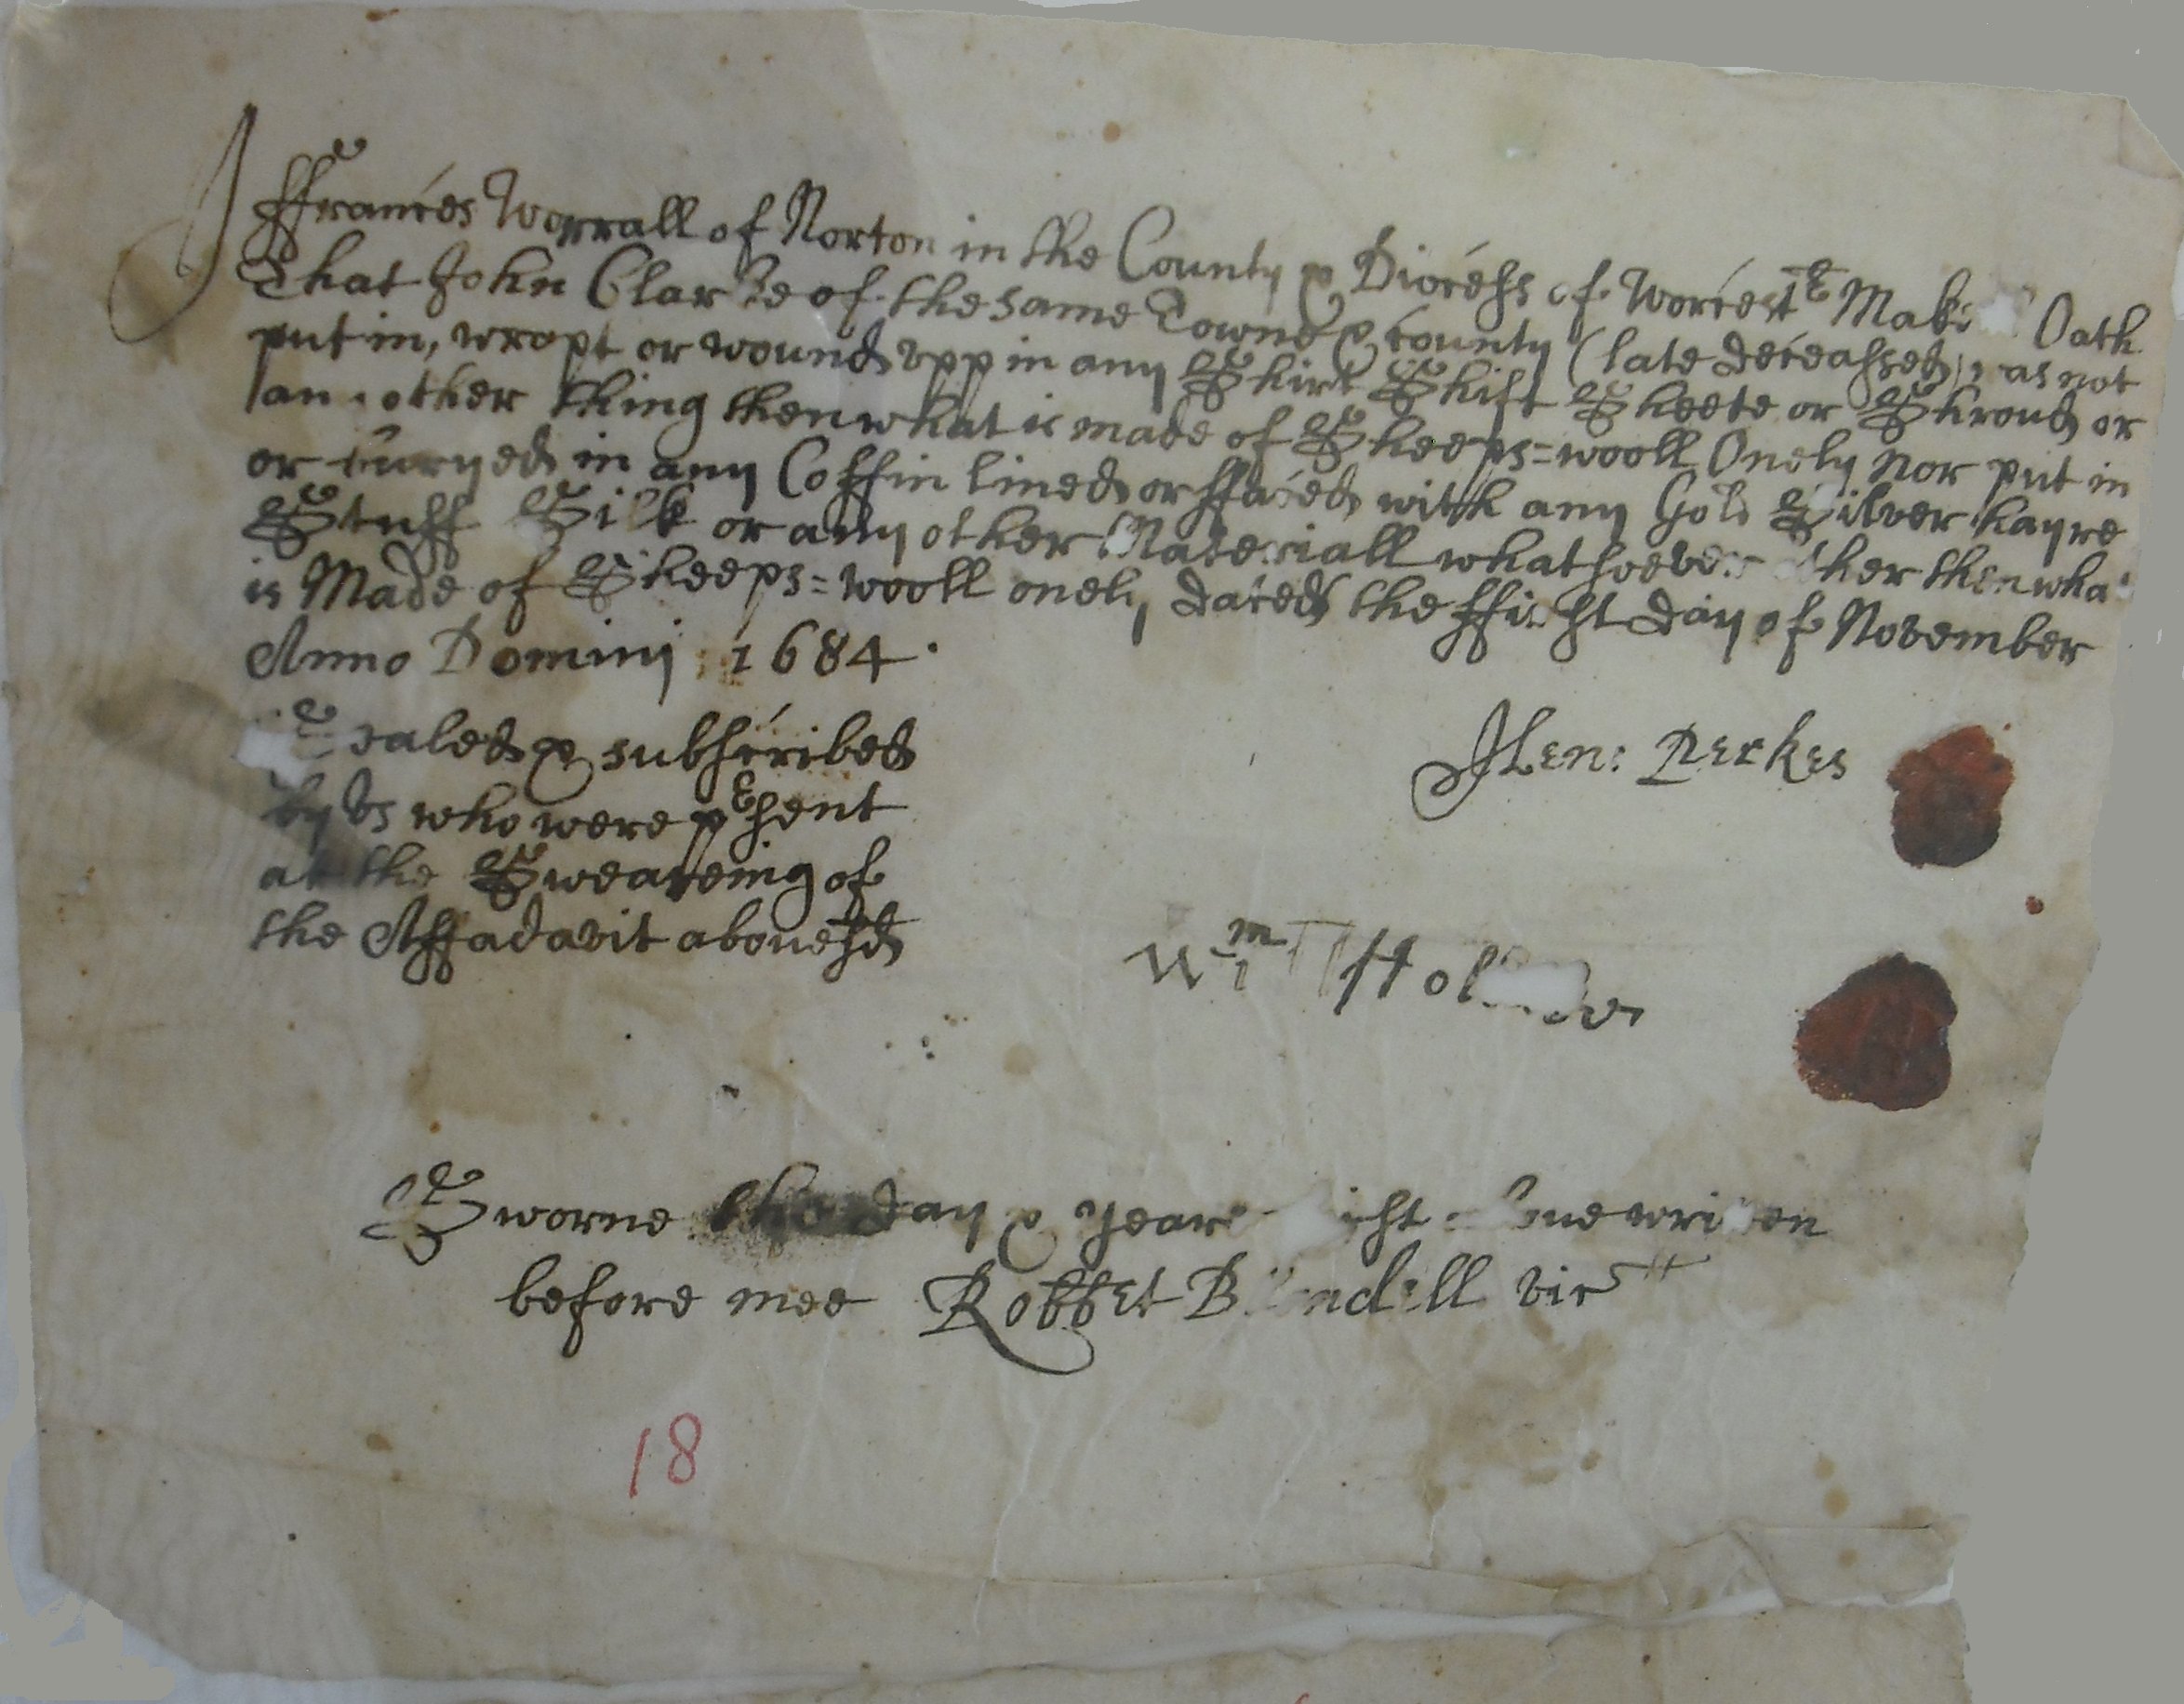 I ffrances Worrall of Norton in the County & Diocess of Worcestr Make Oath
That John Clarke of the same Towne & County (late deceassed) was not
put in, wrapt or wound vpp in any Shirt Shift Sheete or Shroud or
any other thing then what is made of Sheeps=wooll Onely nor put in
or buryed in any Coffin lined or ffaced with any Gold Silver hayre
Stuff Silk or any other Materiall whatsoever other then what
is Made of Sheeps=wooll onely dated the day of November
Anno Domini 1684.
Sealed & subscribed
by vs who were psent
at the Sweareing of
the Affadavit abouesd
Hen: Perkes
Wm
Sworne the day & yeare above written
before mee Robbet vic
18